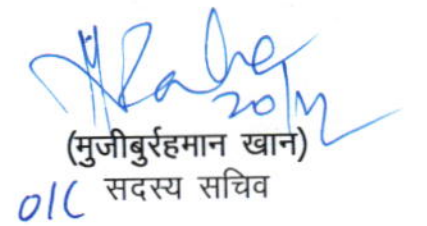 20/12
(मुजीबुर्रहमान खान)
O/C सदस्य सचिव